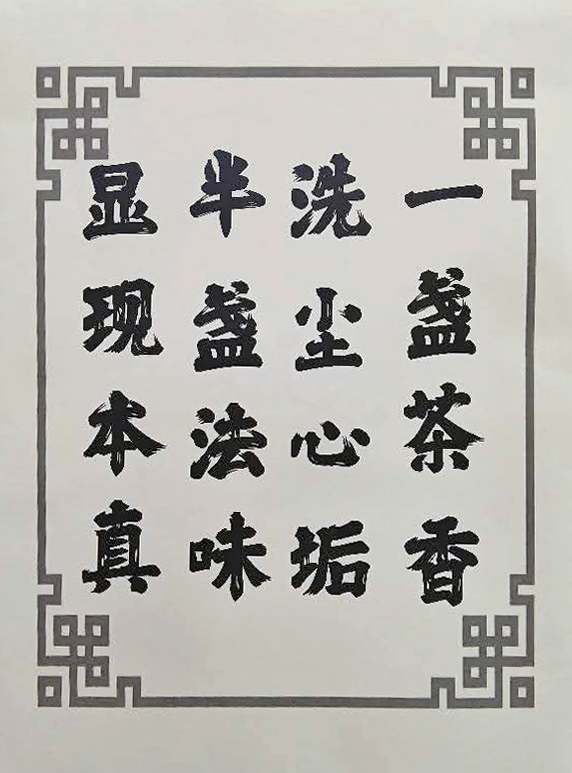 一盏茶香
洗尘心垢
半盏法味
显现本真